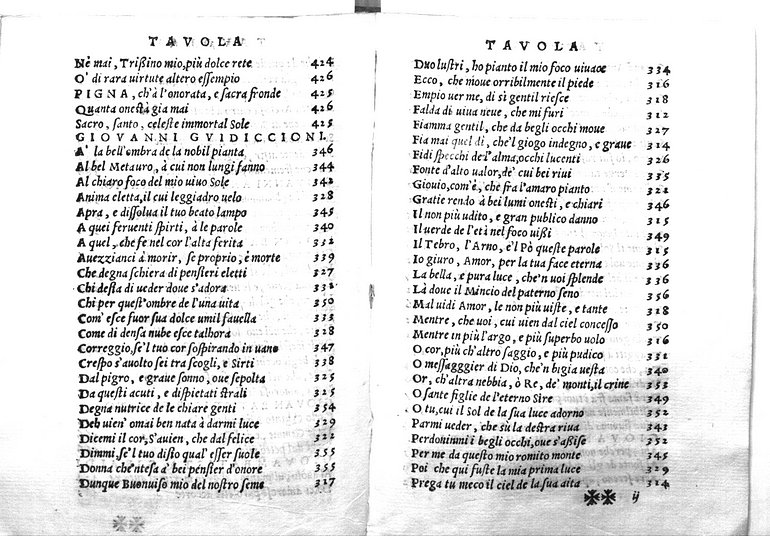 TAVOLA
Nè mai, Trißino mio, più dolce rete 424
O' di rara uirtute altero essempio 426
PIGNA, ch'à l'onorata, e sacra fronde 425
Quanta onestà gia mai 426
Sacro, santo, celeste immortal Sole 425
GIOVANNI GVIDICCIONI.
A' la bell'ombra de la nobil pianta 346
Al bel Metauro, à cui non lungi fanno 344
Al chiaro foco del mio uiuo Sole 342
Anima eletta, il cui leggiadro uelo 328
Apra, e dissolua il tuo beato lampo 345
A quei feruenti spirti, à le parole 340
A quel, che fe nel cor l'alta ferita 352
Auezzianci à morir, se proprio, è morte 339
Che degna schiera di pensieri eletti 327
Chi desta di ueder doue s'adora
Chi per quest'ombre de l'una uita 350
Com' esce fuor sua dolce umil fauella 333
Come di densa nube esce talhora 328
Correggio, se'l tuo cor sospirando in uano 347
Crespo s'auolto sei tra scogli, e Sirti 338
Dal pigro, e graue sonno, oue sepolta 325
Da questi acuti, e dispietati strali 325
Degna nutrice de le chiare genti 354
Deh uien' omai ben nata à darmi luce 329
Dicemi il cor, S'auien, che dal felice 322
Dimmi se'l tuo disio qual' esser suole 355
Donna ch'entesa a' bei pensier d'onore 355
Dunque Buonuiso mio del nostro seme 317
TAVOLA
Duo lustri, ho pianto il mio foco uiuace 334
Ecco, che moue orribilmente il piede 316
Empio uerme, di sì gentil riesce 318
Falda di uiua neue, che mi furi 312
Fiamma gentil, che da begli occhi moue 327
Fia mai quel di, che'l giogo indegno, e graue 314
Fidi specchi de l'alma, occhi lucenti 326
Fonte d'alto ualor, de' cui bei riui 335
Giouio, com'è, che fra l'amaro pianto 322
Gratie rendo à bei lumi onesti, e chiari 346
Il non più udito, e gran publico danno 315
Il uerde de l'età nel foco uißi 349
Il Tebro, l'Arno, e'l Pò queste parole 315
Io giuro, Amor, per la tua face eterna 336
La bella, e pura luce, che'n uoi splende 336
Là doue il Mincio del paterno seno 356
Mal uidi Amor, le non più uiste, e tante 318
Mentre, che uoi, cui uien dal ciel concesso 350
Mentre in più l'argo, e più superbo uolo 316
O cor, più ch'altro saggio, e più pudico 351
O messagggier di Dio, che'n bigia uesta 340
Or, ch'altra nebbia, ò Re, de' monti, il crine 353
O sante figlie de l'eterno Sire 349
O tu, cui il Sol de la sua luce adorno 352
Parmi ueder, che sù la destra riua 343
Perdoninmi i begli occhi, oue s'aßise 352
Per me da questo mio romito monte 345
Poi che qui fuste la mia prima luce 329
Prega tu meco il ciel de la sua aita 314
ij